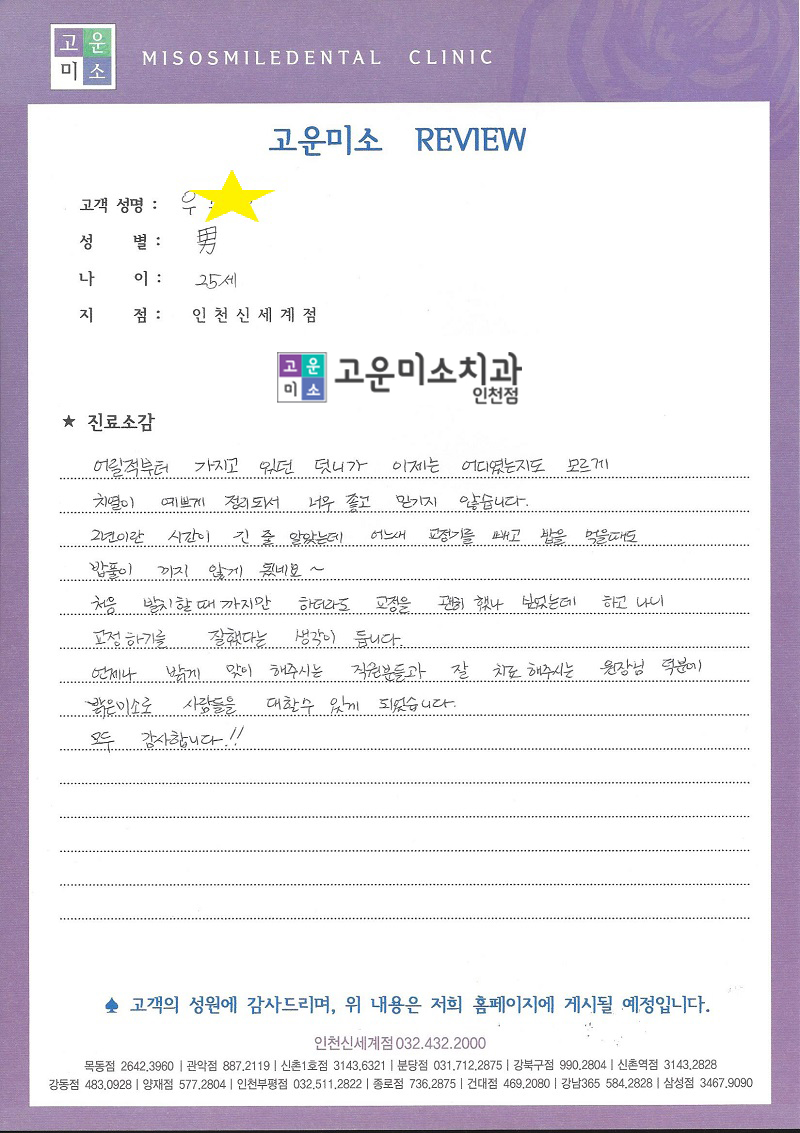 고운
미소
MISOSMILEDENTAL CLINIC
고운미소 REVIEW
고객 성명 : 우
성 별 : 男
나 이 : 25세
지 점 : 인천신세계점
고운
미소
고운미소치과
인천점
★ 진료소감
어릴적부터 가지고 있던 덧니가 이제는 어디였는지도 모르게
치열이 예쁘게 정리되서 너무 좋고 믿기지 않습니다.
2년이란 시간이 긴 줄 알았는데 어느새 교정기를 빼고 밥을 먹을때도
밥풀이 끼지 않게 됐네요~
처음 발치할 때 까지만 하더라도 교정을 괜히 했나 싶었는데 하고 나니
교정하기를 잘했다는 생각이 듭니다.
언제나 밝게 맞이 해주시는 직원분들과 잘 치료 해주시는 원장님 덕분에
밝은미소로 사람들을 대할수 있게 되었습니다.
모두 감사합니다!!
♠ 고객의 성원에 감사드리며, 위 내용은 저희 홈페이지에 게시될 예정입니다.
인천신세계점 032.432.2000
목동점 2642.3960 | 관악점 887.2119 | 신촌1호점 3143.6321 | 분당점 031.712.2875 | 강북구점 990.2804 | 신촌역점 3143.2828
강동점 483.0928 | 양재점 577.2804 | 인천부평점 032.511.2822 | 종로점 736.2875 | 건대점 469.2080 | 강남365 584.2828 | 삼성점 3467.9090